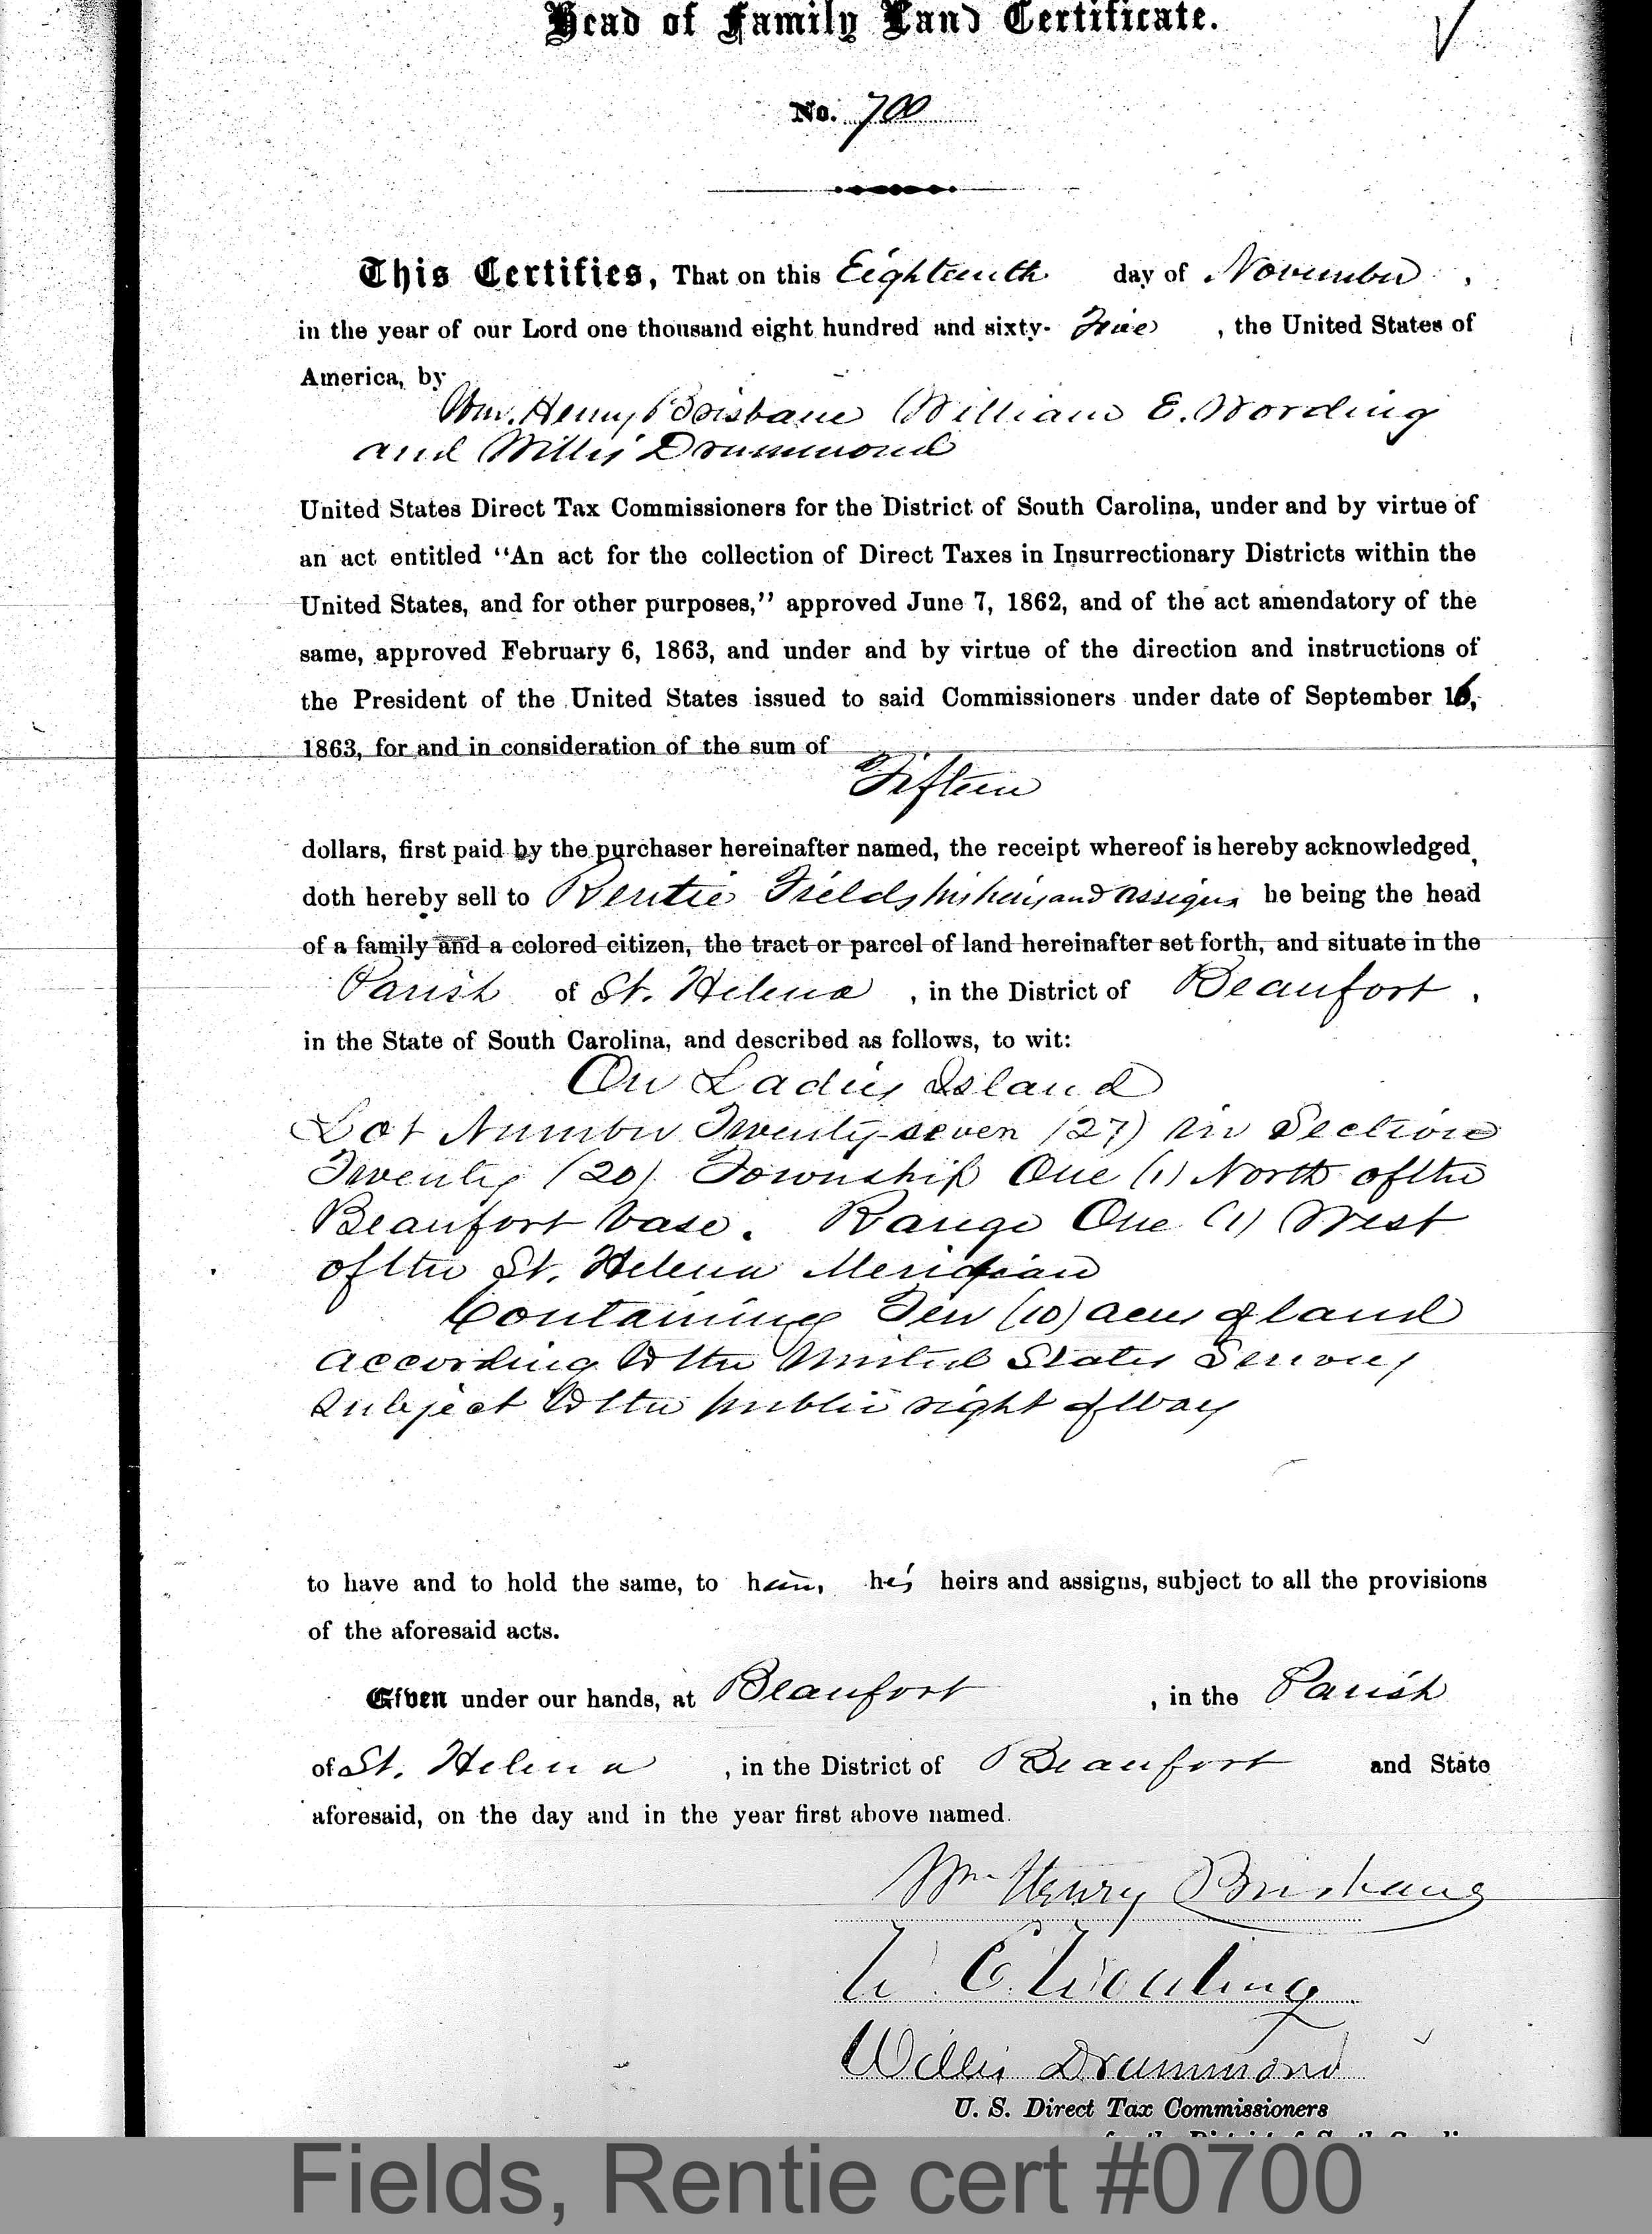 Head of Family Land Certificate.
No. 700
This Certifies, That on this Eighteenth day of November,
in the year of our Lord one thousand eight hundred and sixty- Five, the United States of
America, by
Wm. Henry Brisbane William E. Wording
and Willis Drummond
United States Direct Tax Commissioners for the District of South Carolina, under and by virtue of
an act entitled "An act for the collection of Direct Taxes in Insurrectionary Districts within the
United States, and for other purposes," approved June 7, 1862, and of the act amendatory of the
same, approved February 6, 1863, and under and by virtue of the direction and instructions of
the President of the United States issued to said Commissioners under date of September 16,
1863, for and in consideration of the sum of
Fifteen
dollars, first paid by the purchaser hereinafter named, the receipt whereof is hereby acknowledged,
doth hereby sell to Rentie Fields his heirs and assigns he being the head
of a family and a colored citizen, the tract or parcel of land hereinafter set forth, and situate in the
Parish of St. Helena, in the District of Beaufort.
in the State of South Carolina, and described as follows, to wit:
On Ladies Island
Lot Number Twenty-seven (27) in Section
Twenty (20) Township One (1) North of the
Beaufort base. Range One (1) West
of the St. Helena Meridian
Containing Ten (10) acres of land
according to the United States Survey
subject to the public right of way
to have and to hold the same, to him, his heirs and assigns, subject to all the provisions
of the aforesaid acts.
Given under our hands, at Beaufort, in the Parish
of St. Helena, in the District of Beaufort and State
aforesaid, on the day and in the year first above named.
Wm Henry Brisbane
W. E. Wording
Willis Drummond
U. S. Direct Tax Commissioners
for the District of South Carolina
Fields, Rentie cert #0700